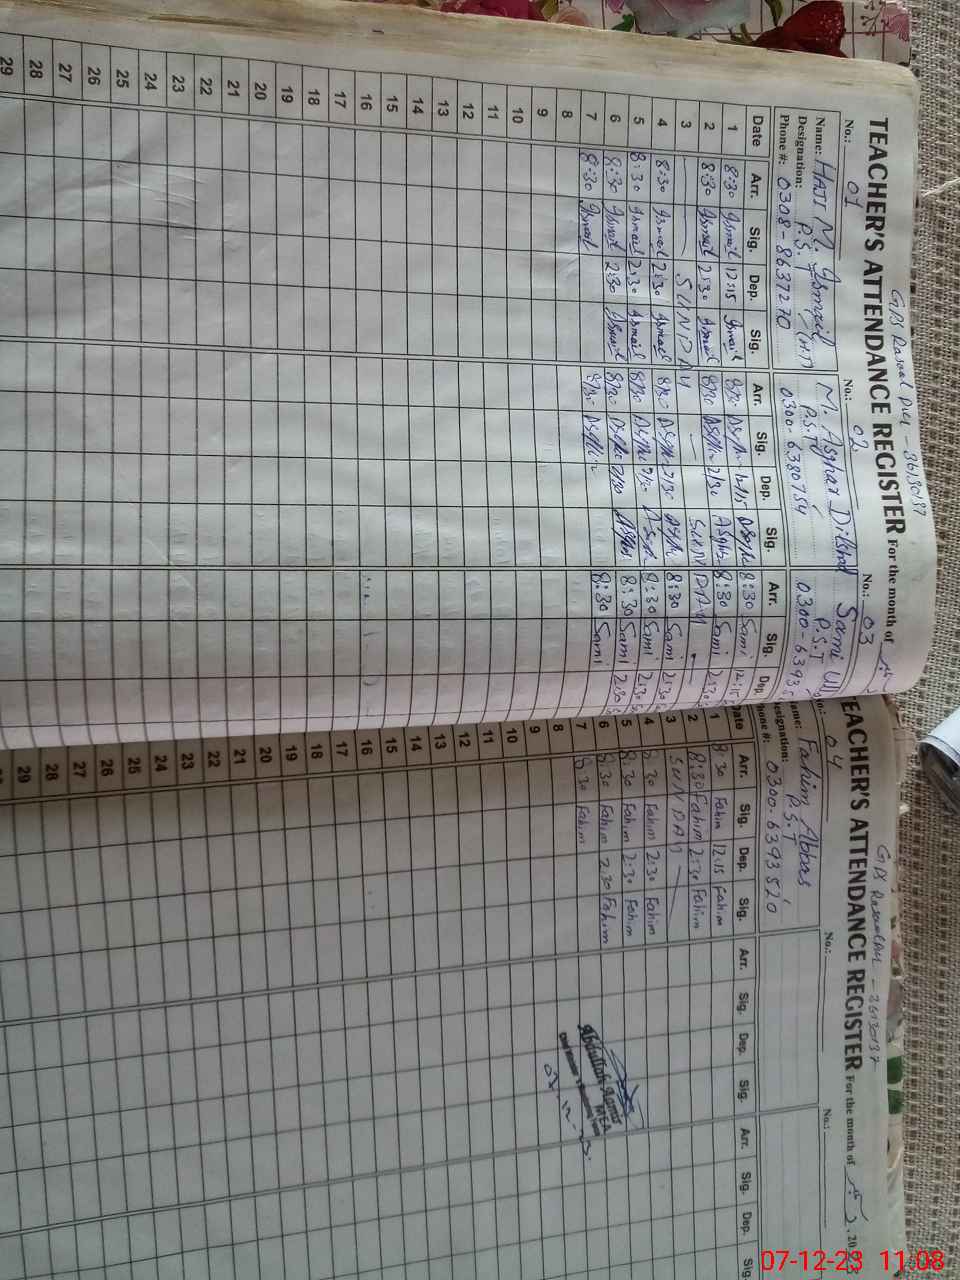 TEACHER'S ATTENDANCE REGISTER For the month of
No.: 01 No.: 02 No.: 03
Name: HAJI M. Ismail (H.T) M. Asghar Dilshad Sami
Designation: P.S.T P.S.T P.S.T
Phone #: 0308-8637270 0300-6380754 0300-6393
Date Arr. Sig. Dep. Sig. Arr. Sig. Dep. Sig. Arr. Sig. Dep.
1 8:30 Ismail 12:15 Ismail 8:30 Asghr 12:15 Asghr 8:30 Sami 12:15
2 8:30 Ismail 2:30 Ismail 8:30 Asghr 2:30 Asghr 8:30 Sami 2:30
3 SUNDAY SUNDAY
4 8:30 Ismail 2:30 Ismail 8:30 Asghr 2:30 Asghr 8:30 Sami 2:30
5 8:30 Ismail 2:30 Ismail 8:30 Asghr 2:30 Asghr 8:30 Sami 2:30
6 8:30 Ismail 2:30 Ismail 8:30 Asghr 2:30 Asghr 8:30 Sami 2:30
7 8:30 Ismail 8:30 Asghr 8:30 Sami
8
9
10
11
12
13
14
15
16
17
18
19
20
21
22
23
24
25
26
27
28
29
TEACHER'S ATTENDANCE REGISTER For the month of
No.: 04 No.: No.:
Name: Fahim Abbas
Designation: P.S.T
Phone #: 0300-6393520
Date Arr. Sig. Dep. Sig. Arr. Sig. Dep. Sig. Arr. Sig. Dep. Sig.
1 8:30 Fahim 12:15 Fahim
2 8:30 Fahim 2:30 Fahim
3 SUNDAY
4 8:30 Fahim 2:30 Fahim
5 8:30 Fahim 2:30 Fahim
6 8:30 Fahim 2:30 Fahim
7 8:30 Fahim
8
9
10
11
12
13
14
15
16
17
18
19
20
21
22
23
24
25
26
27
28
29
Abdullah Aamir
MEA
07-12-23 11:08